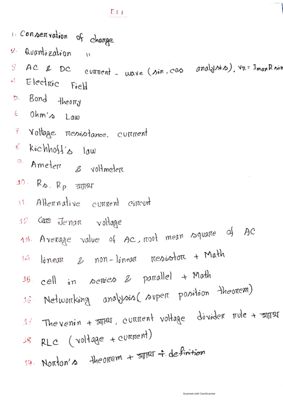 1. Conservation of charge
2. Quantization "
3. AC & DC current - wave (sin, cos analysis), VR = Imax R sin
4. Electric Field
5. Band theory
6. Ohm's Law
7. Voltage resistance, current
8. Kichhoff's law
9. Ameter & voltmeter
10. Rs, Rp অংক
11. Alternative current circuit
Zenar voltage
Average value of AC, root mean square of AC
linear & non-linear resistors + Math
cell in series & parallel + Math
16. Networking analysis (super position theorem)
Thevenin + অংক, current voltage divider rule + অংক
18. RLC (voltage + current)
19. Norton's theorem + অংক + definition
Scanned with CamScanner